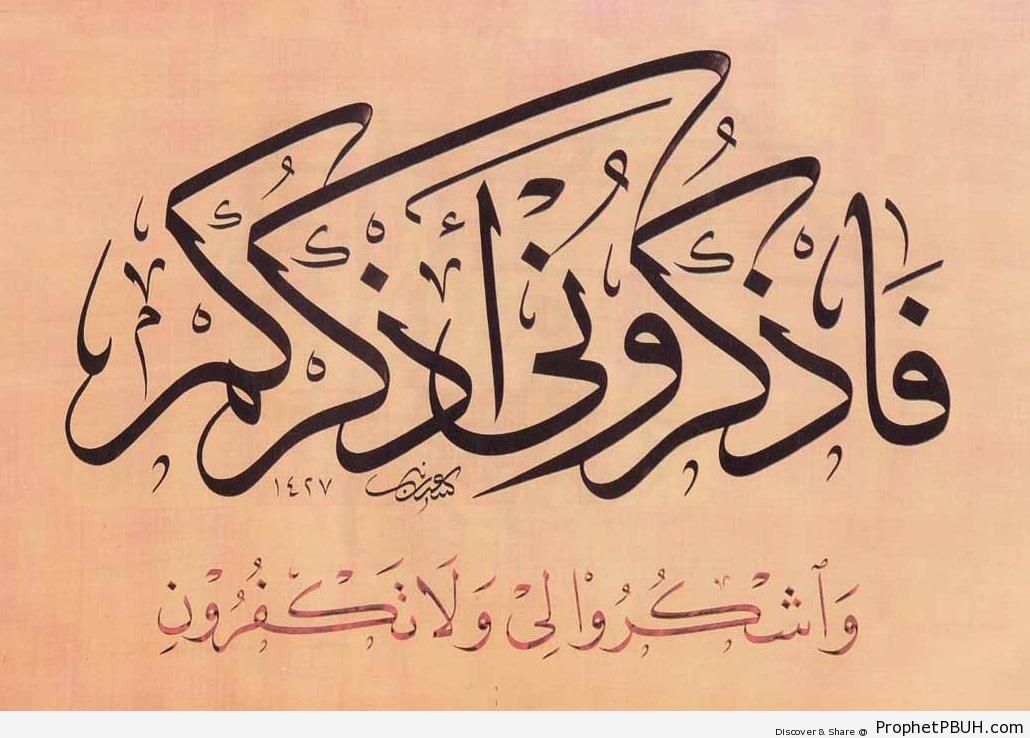 فَاذْكُرُونِي أَذْكُرْكُمْ
١٤٢٧
وَٱشْكُرُوْا لِيْ وَلَا تَكْفُرُوْنِ
Discover & Share @ ProphetPBUH.com